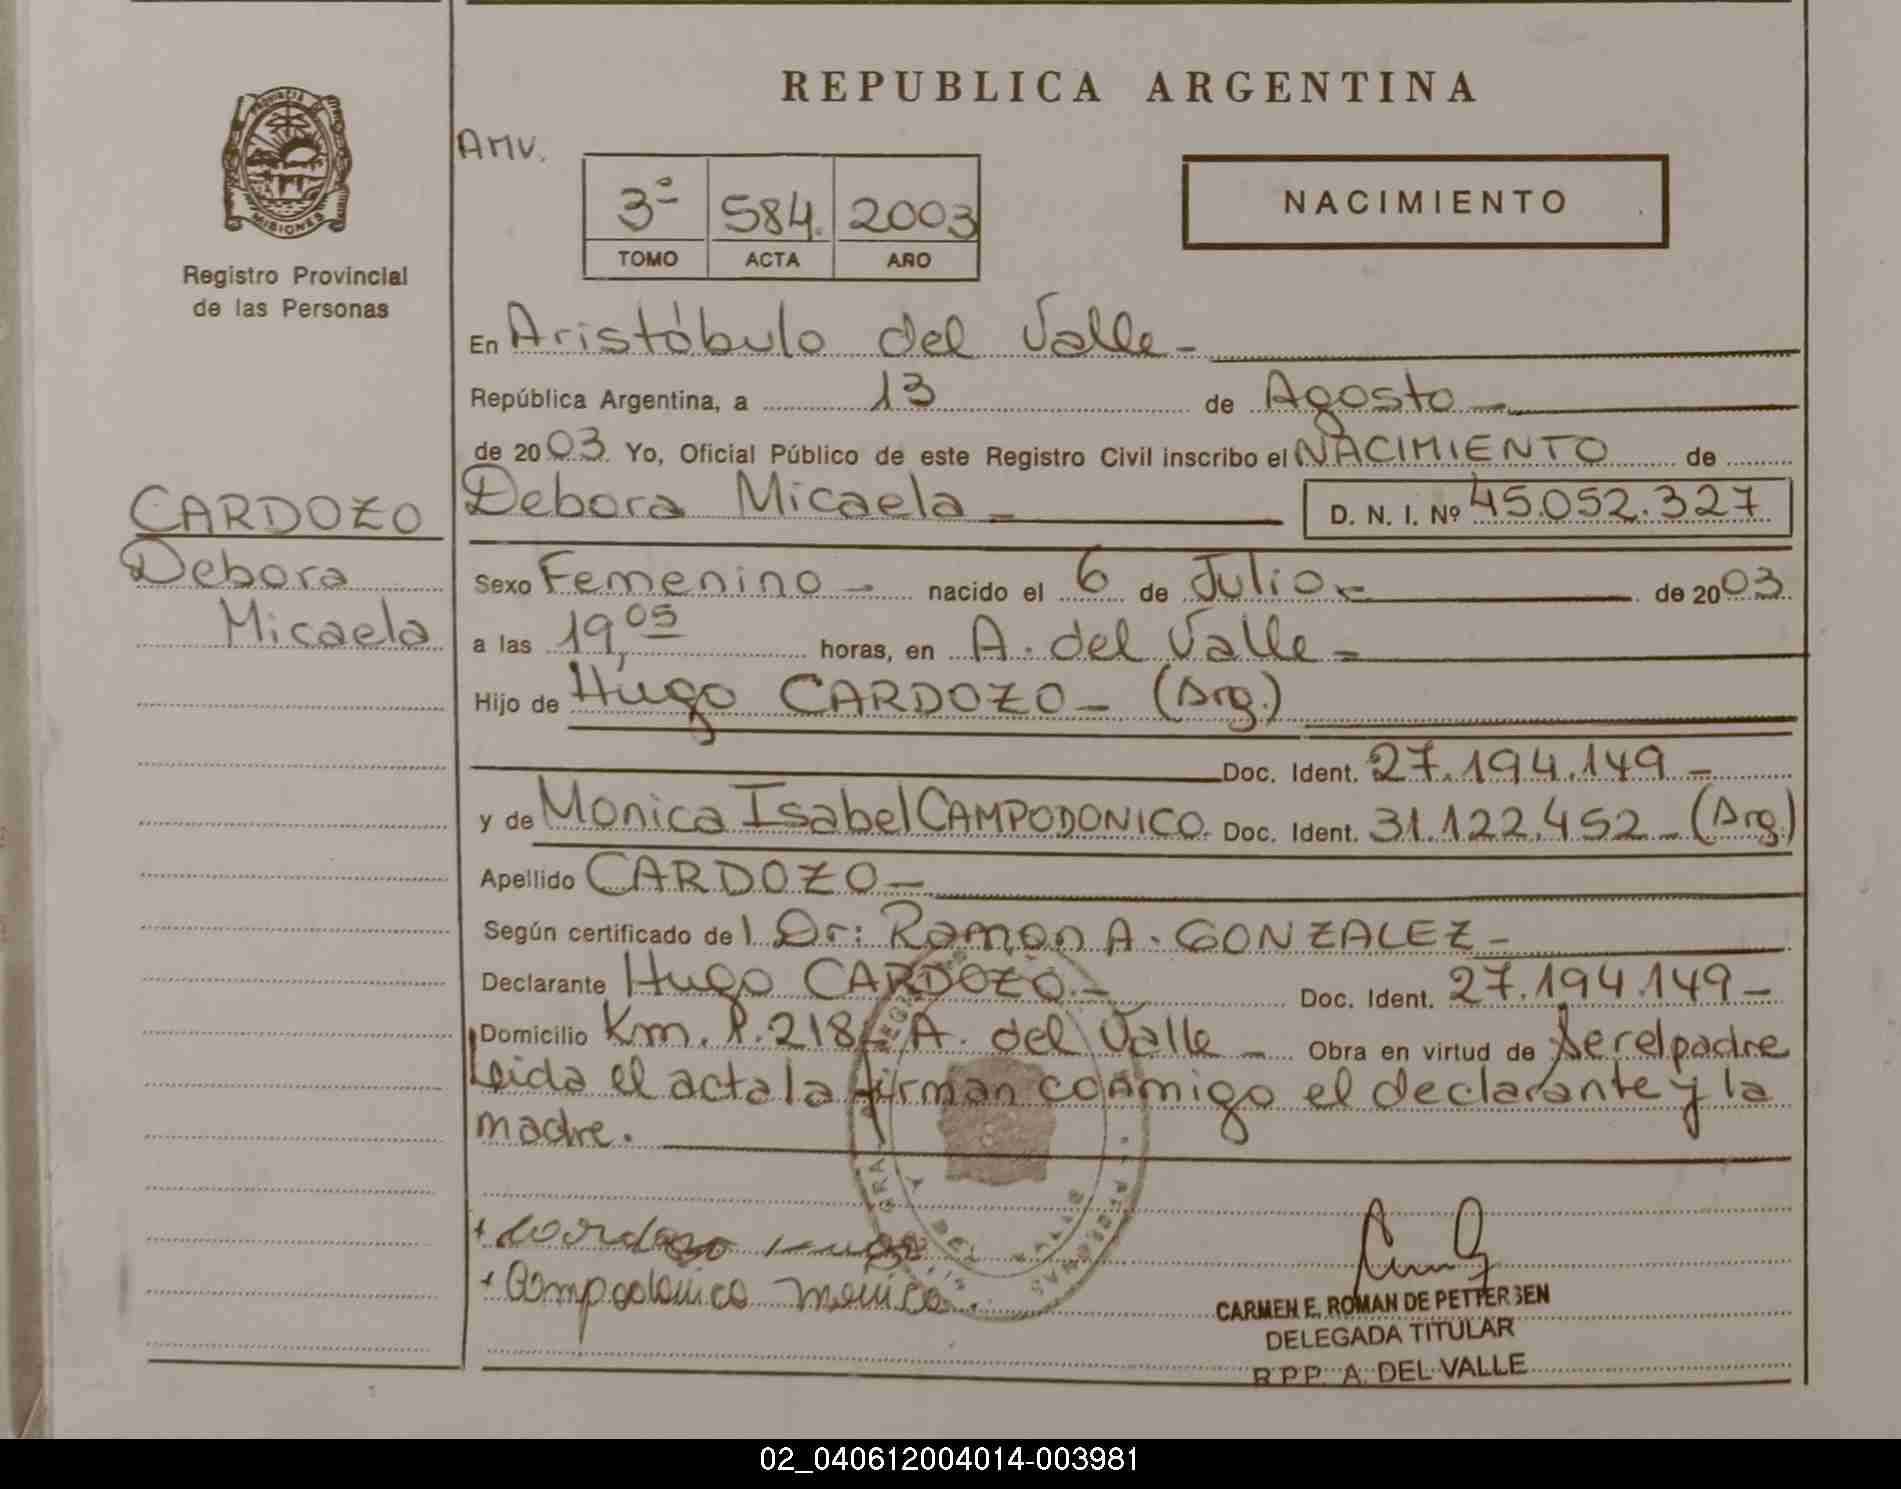 PROVINCIA
MISIONES
Registro Provincial
de las Personas
CARDOZO
Debora
Micaela
REPUBLICA ARGENTINA
AMV.
3º 584. 2003
TOMO ACTA AÑO
NACIMIENTO
En Aristóbulo del Valle -
República Argentina, a 13 de Agosto -
de 2003 Yo, Oficial Público de este Registro Civil inscribo el NACIMIENTO de
Debora Micaela - D. N. I. Nº 45.052.327
Sexo Femenino - nacido el 6 de Julio - de 2003
a las 19,05 horas, en A. del Valle -
Hijo de Hugo CARDOZO - (Arg.)
Doc. Ident. 27.194.149 -
y de Monica Isabel CAMPODONICO. Doc. Ident. 31.122.452 - (Arg.)
Apellido CARDOZO -
Según certificado del Dr: Ramon A. GONZALEZ -
Declarante Hugo CARDOZO - Doc. Ident. 27.194.149 -
Domicilio Km. P. 218 - A. del Valle - Obra en virtud de ser el padre
Leida el acta la firman conmigo el declarante y la
madre.
+ Cardozo Hugo
+ Campodonico Monica.
CARMEN E. ROMAN DE PETTERSEN
DELEGADA TITULAR
R.P.P. A. DEL VALLE
02_040612004014-003981